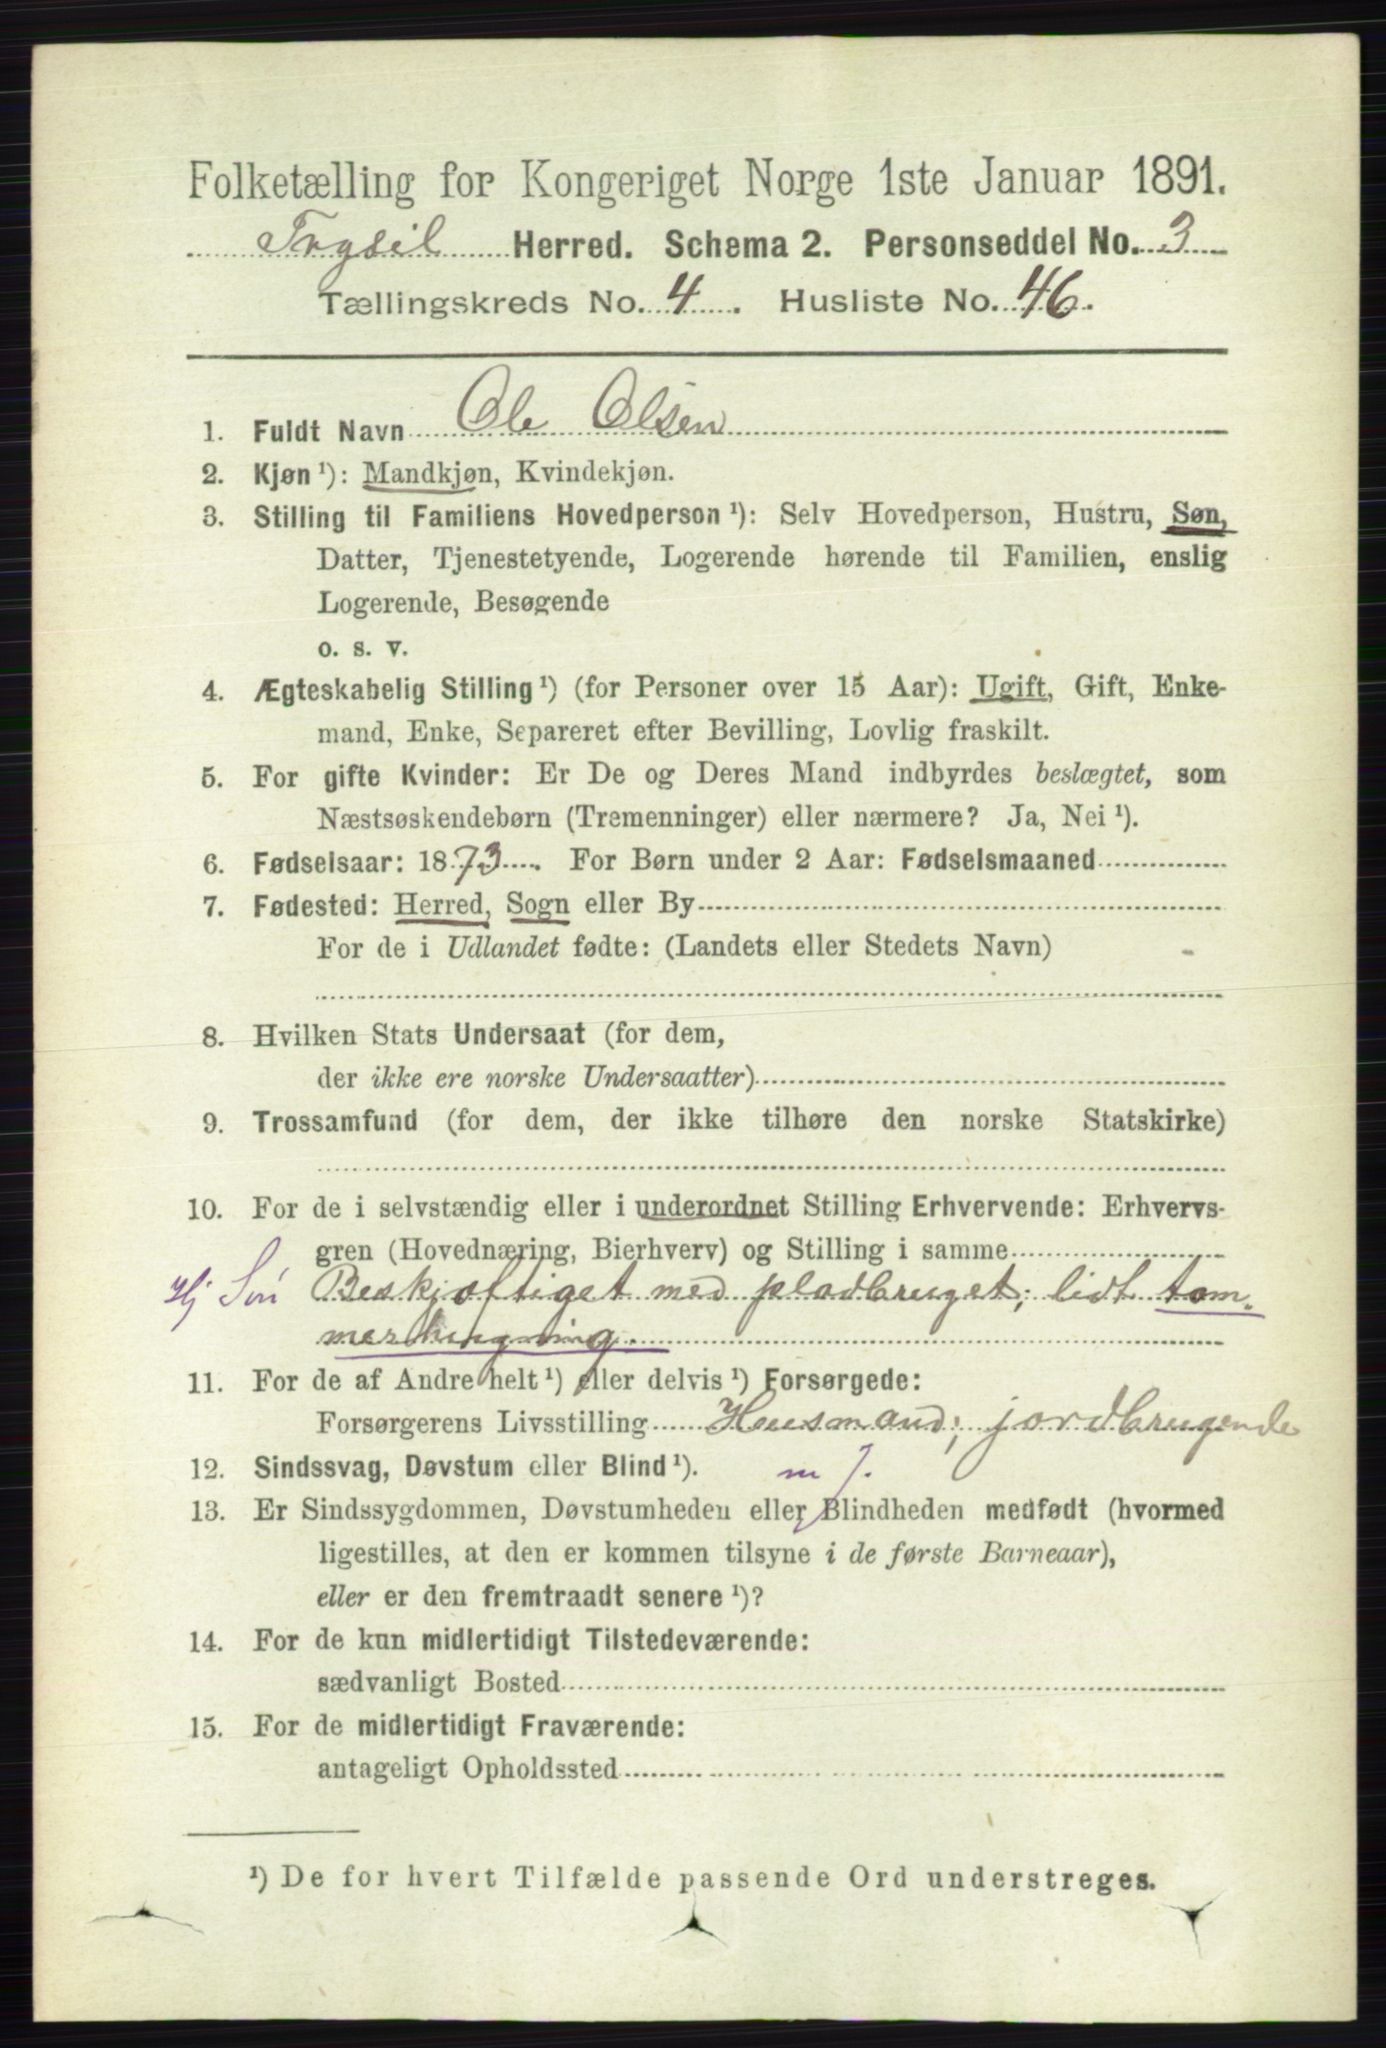 Folketælling for Kongeriget Norge 1ste Januar 1891.
Trysil Herred. Schema 2. Personseddel No. 3
Tællingskreds No. 4. Husliste No. 46.
1. Fuldt Navn Ole Olsen
2. Kjøn ¹): Mandkjøn, Kvindekjøn.
3. Stilling til Familiens Hovedperson ¹): Selv Hovedperson, Hustru, Søn,
Datter, Tjenestetyende, Logerende hørende til Familien, enslig
Logerende, Besøgende
o. s. v.
4. Ægteskabelig Stilling ¹) (for Personer over 15 Aar): Ugift, Gift, Enke-
mand, Enke, Separeret efter Bevilling, Lovlig fraskilt.
5. For gifte Kvinder: Er De og Deres Mand indbyrdes beslægtet, som
Næstsøskendebørn (Tremenninger) eller nærmere? Ja, Nei ¹).
6. Fødselsaar: 1873. For Børn under 2 Aar: Fødselsmaaned
7. Fødested: Herred, Sogn eller By
For de i Udlandet fødte: (Landets eller Stedets Navn)
8. Hvilken Stats Undersaat (for dem,
der ikke ere norske Undersaatter)
9. Trossamfund (for dem, der ikke tilhøre den norske Statskirke)
10. For de i selvstændig eller i underordnet Stilling Erhvervende: Erhvervs-
gren (Hovednæring, Bierhverv) og Stilling i samme
Hj Søn Beskjæftiget med pladbruget; lidt tom-
merhugning.
11. For de af Andre helt ¹) eller delvis ¹) Forsørgede:
Forsørgerens Livsstilling Husmand; jordbrugende
12. Sindssvag, Døvstum eller Blind ¹). m
13. Er Sindssygdommen, Døvstumheden eller Blindheden medfødt (hvormed
ligestilles, at den er kommen tilsyne i de første Barneaar),
eller er den fremtraadt senere ¹)?
14. For de kun midlertidigt Tilstedeværende:
sædvanligt Bosted
15. For de midlertidigt Fraværende:
antageligt Opholdssted
¹) De for hvert Tilfælde passende Ord understreges.